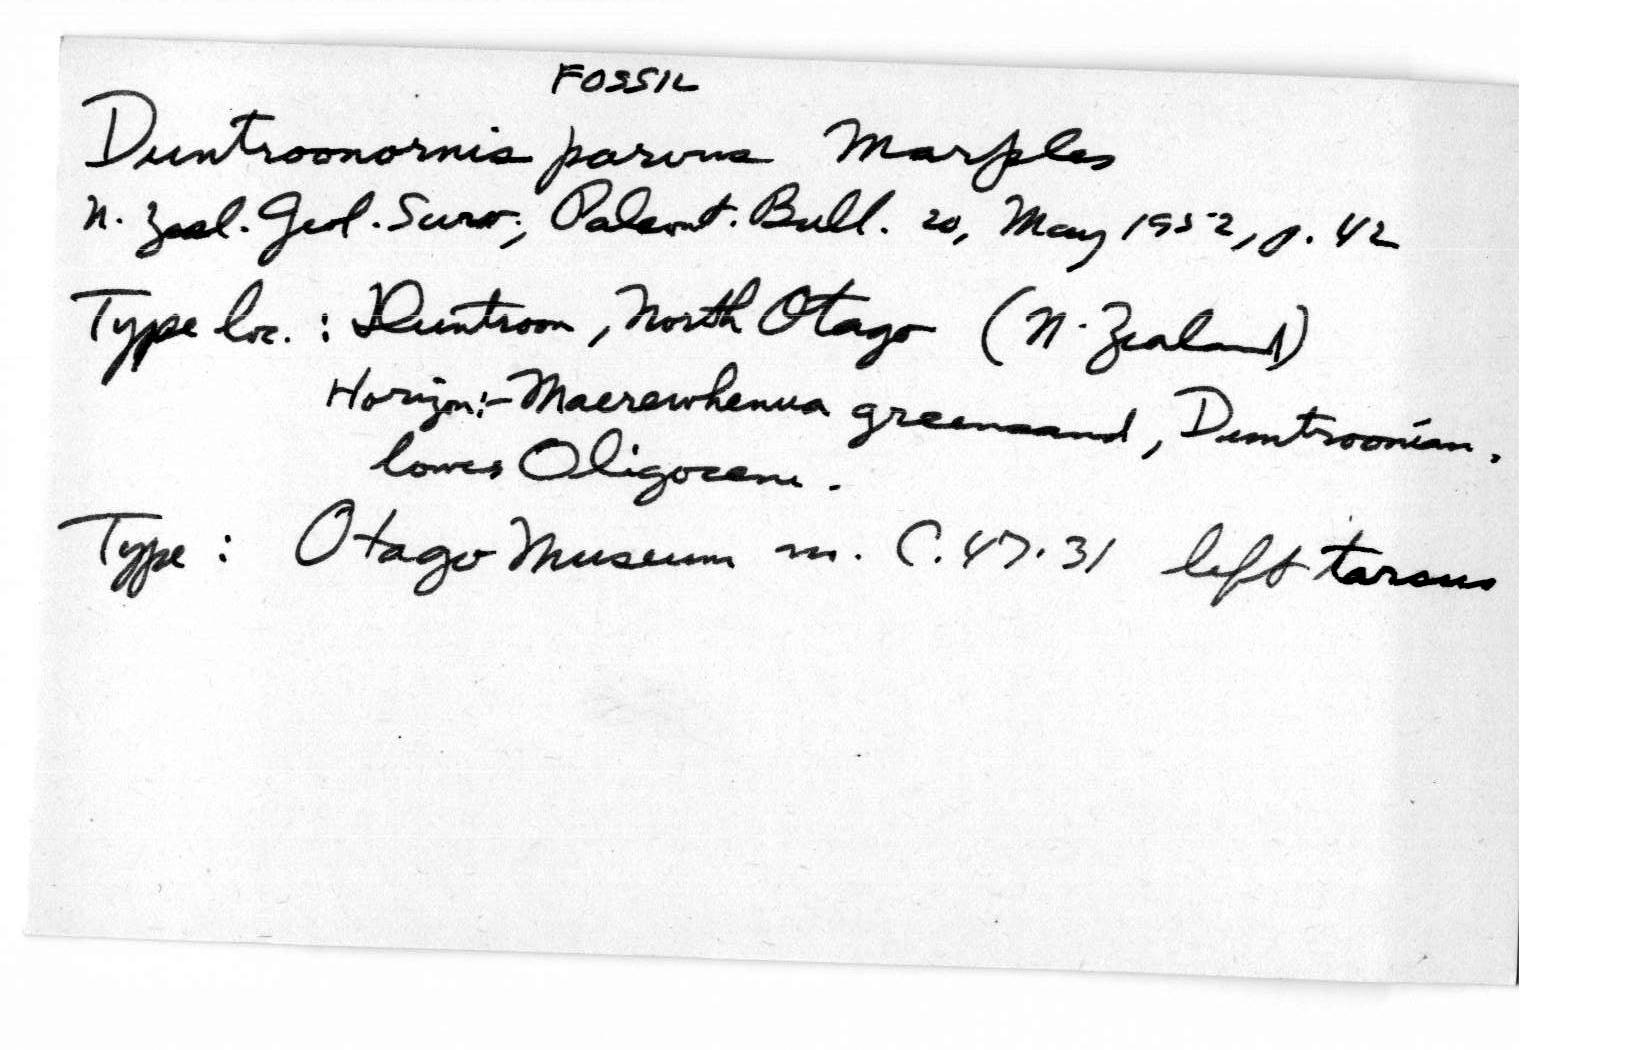 FOSSIL
Duntroonornis parvus Marples
N. Zeal. Geol. Surv., Paleont. Bull. 20, May 1952, p. 42
Type loc. : Duntroon, North Otago (N. Zealand)
Horizon:- Maerewhenua greensand, Duntroonian.
lower Oligocene.
Type : Otago Museum no. C.47.31 left tarsus